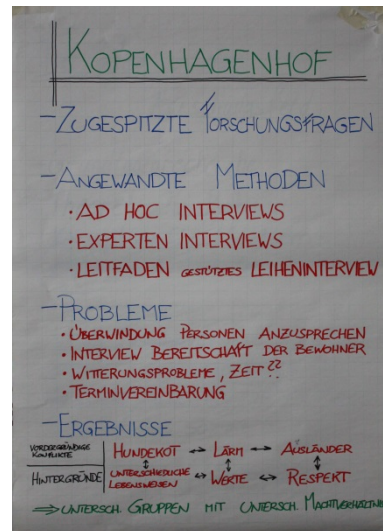 KOPENHAGENHOF
- ZUGESPITZTE FORSCHUNGSFRAGEN
- ANGEWANDTE METHODEN
• AD HOC INTERVIEWS
• EXPERTEN INTERVIEWS
• LEITFADEN GESTÜTZTES LEIHENINTERVIEW
- PROBLEME
• ÜBERWINDUNG PERSONEN ANZUSPRECHEN
• INTERVIEW BEREITSCHAFT DER BEWOHNER
• WITTERUNGSPROBLEME, ZEIT??
• TERMINVEREINBARUNG
- ERGEBNISSE
VORDERGRÜNDIGE KONFLIKTE | HUNDEKOT ↔ LÄRM ↔ AUSLÄNDER
HINTERGRÜNDE | UNTERSCHIEDLICHE LEBENSWEISEN ↔ WERTE ↔ RESPEKT
⇒ UNTERSCH. GRUPPEN MIT UNTERSCH. MACHTVERHÄLTNI